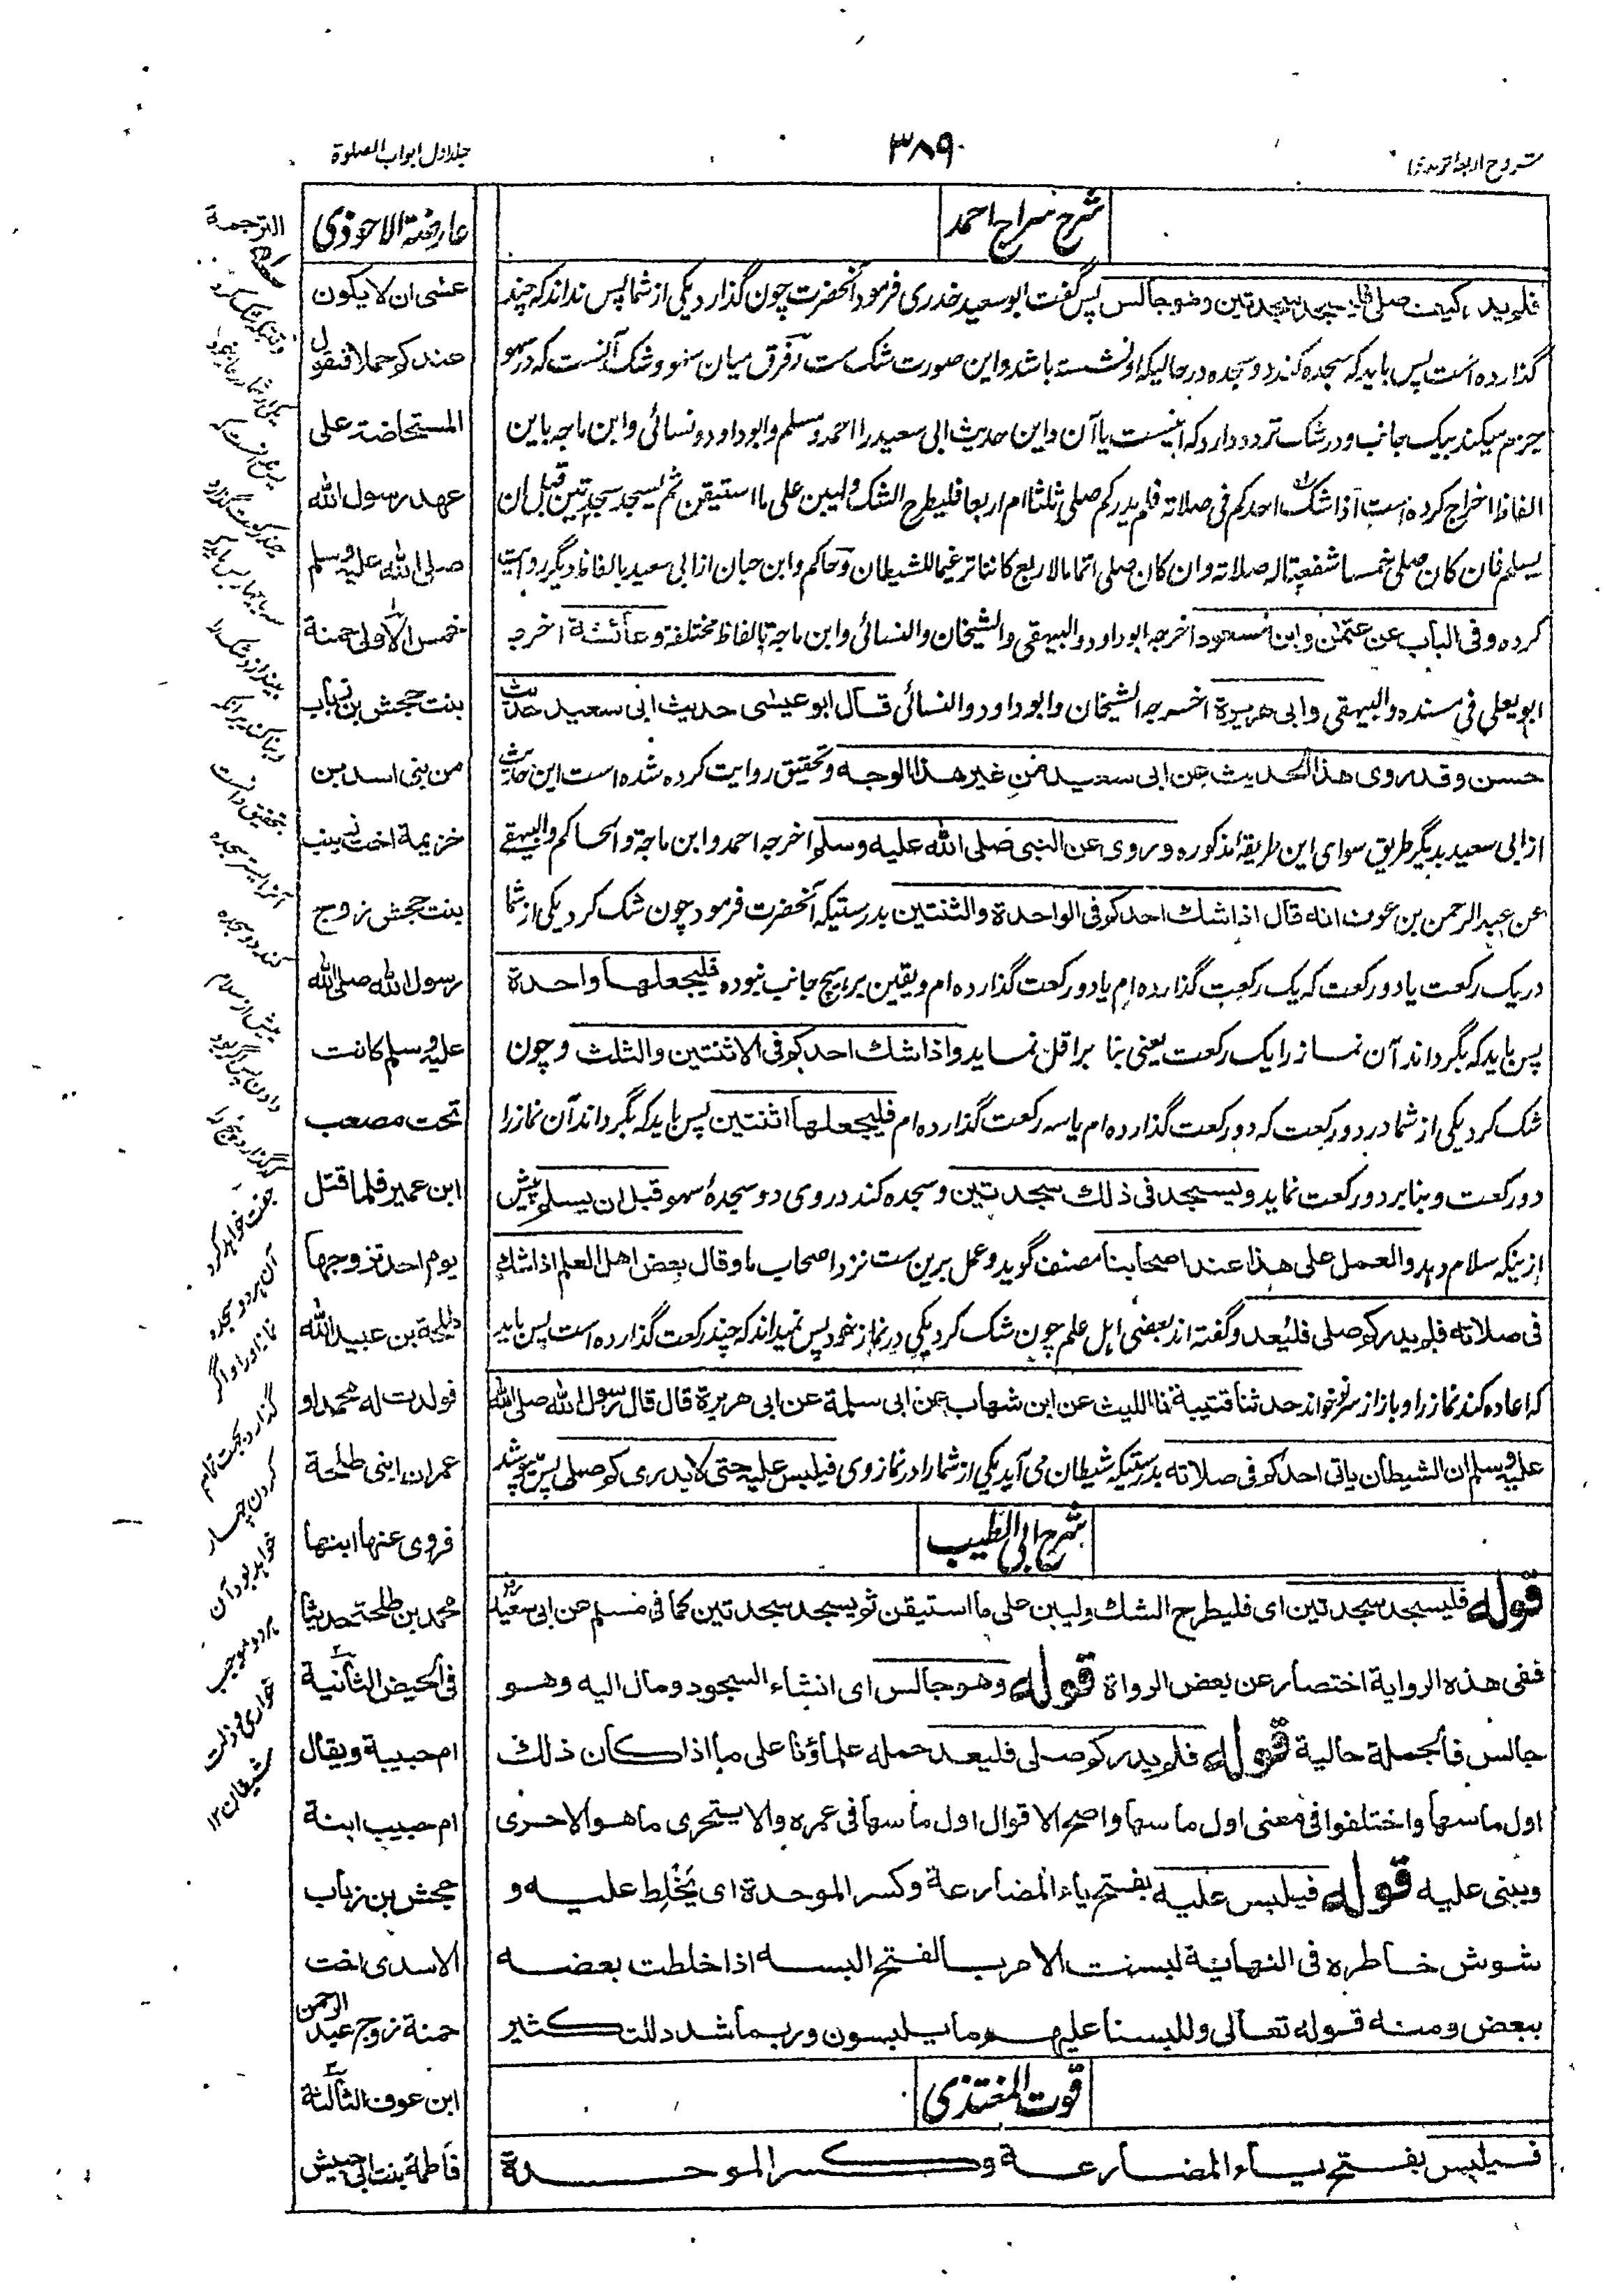 شروح اربعه ترمذی
۳۸۹
جلد اول ابواب الصلوة
شرح سراج احمد
فلم يدر كيف صلى فليسجد سجدتين وهو جالس پس گفت ابو سعید خدری فرمود آنحضرت چون گذارد یکی از شما پس نداند که چند
گذارده است پس باید که سجده کند دو سجده در حالیکه او نشسته باشد و این صورت شک ست و فرق میان سهو و شک آنست که در سهو
جزم میکند بیک جانب و در شک تردد دارد که اینست یا آن و این حدیث ابی سعید را احمد و مسلم و ابو داود و نسائی و ابن ماجه باین
الفاظ اخراج کرده است اذا شک احدکم فی صلاته فلم یدر کم صلی ثلثا ام اربعا فلیطرح الشک ولیبن علی ما استیقن ثم یسجد سجدتین قبل ان
یسلم فان کان صلی خمسا شفعتا له صلاته وان کان صلی اتماما لاربع کانتا ترغیما للشیطان و حاکم و ابن حبان از ابی سعید بالفاظ دیگر روایت
کرده و فی الباب عن عثمن وابن مسعود اخرجه ابو داود والبیهقی والشیخان والنسائی وابن ماجة بالفاظ مختلفة وعائشة اخرجه
ابو یعلی فی مسنده والبیهقی وابی هریرة اخرجه الشیخان وابو داود والنسائی قال ابو عیسی حدیث ابی سعید حدیث
حسن وقد روی هذا الحدیث عن ابی سعید من غیر هذا الوجه و تحقیق روایت کرده شده است این حدیث
از ابی سعید بدیگر طریق سوای این طریقه مذکوره وروی عن النبی صلی الله علیه وسلم اخرجه احمد وابن ماجة والحاکم والبیهقی
عن عبد الرحمن بن عوف انه قال اذا شك احدكم فی الواحدة والثنتین بدرستیکه آنحضرت فرمود چون شک کرد یکی از شما
در یک رکعت یا دو رکعت که یک رکعت گذارده ام یا دو رکعت گذارده ام و یقین بر هیچ جانب نبوده فلیجعلها واحدة
پس باید که بگرداند آن نماز را یک رکعت یعنی بنا بر اقل نماید واذا شك احدكم فی الاثنتین والثلث و چون
شک کرد یکی از شما در دو رکعت که دو رکعت گذارده ام یا سه رکعت گذارده ام فلیجعلها اثنتین پس باید که بگرداند آن نماز را
دو رکعت و بنا بر دو رکعت نماید ویسجد فی ذلك سجدتین و سجده کند در وی دو سجدهٔ سهو قبل ان یسلم پیش
ازینکه سلام دهد والعمل علی هذا عند اصحابنا مصنف گوید و عمل برین ست نزد اصحاب ما وقال بعض اهل العلم اذا شك
فی صلاته فلم یدر كم صلی فلیعد و گفته اند بعضی اهل علم چون شک کرد یکی در نماز خود پس نمیداند که چند رکعت گذارده است پس باید
که اعاده کند نماز را و باز از سر نو خواند حدثنا قتیبة نا اللیث عن ابن شهاب عن ابی سلمة عن ابی هریرة قال قال رسول الله صلی الله
علیه وسلم ان الشیطان یاتی احدكم فی صلاته بدرستیکه شیطان می آید یکی از شما را در نماز وی فیلبس علیه حتی لا یدری كم صلی پس می پوشد
شرح ابی الطیب
قوله فلیسجد سجدتین ای فلیطرح الشك ولیبن علی ما استیقن ثم یسجد سجدتین كما فی مسلم عن ابی سعید
ففی هذه الروایة اختصار عن بعض الرواة قوله وهو جالس ای انشاء السجود ومال الیه وهو
جالس فالجملة حالیة قوله فلم یدر كم صلی فلیعد حمله علماؤنا علی ما اذا كان ذلك
اول ما سها واختلفوا فی معنی اول ما سها واصح الاقوال اول ما سها فی عمره والا یتحری ما هو الاحری
ویبنی علیه قوله فیلبس علیه بفتح یاء المضارعة وكسر الموحدة ای یخلط علیه و
شوش خاطره فی النهایة لبست الامر بالفتح البسه اذا خلطت بعضه
ببعض ومنه قوله تعالی وللبسنا علیهم ما یلبسون وربما شدد للتكثیر
قوت المغتذی
فیلبس بفتح یاء المضارعة وكسر الموحدة
عارضة الاحوذی
عشی ان لا یكون
عندكم حملا فنقول
المستحاضة علی
عهد رسول الله
صلی الله علیه وسلم
خمس الاولی حمنة
بنت جحش بن رباب
من بنی اسد بن
خزیمة اخت زینب
بنت جحش زوج
رسول الله صلی الله
علیه وسلم كانت
تحت مصعب
ابن عمیر فلما قتل
یوم احد تزوجها
طلحة بن عبید الله
فولدت له محمد او
عمران ابنی طلحة
فروی عنها ابنها
محمد بن طلحة حدیثا
فی الحیض الثانیة
ام حبیبة ویقال
ام حبیب ابنة
جحش بن رباب
الاسدی اخت
حمنة زوج عبد الرحمن
ابن عوف الثالثة
فاطمة بنت ابی حبیش
الترجمة
وقتیکه شک کرد
یکی از شما در نماز خود
پس ندانست که
چند رکعت گذارد
سه یا چهار پس باید که
بیندازد شک را
و بنا کند بر آنکه
بتحقیق دانست
آنرا پستر سجده
کند دو سجده
پیش از سلام
دادن پس اگر بود
که گذارد پنج را
جفت خواهد کرد
آن هر دو سجده
نماز او را و اگر
گذارد بجهت تمام
کردن چهار
خواهد بود آن
هر دو موجب
خواری و ذلت
شیطان ۱۲